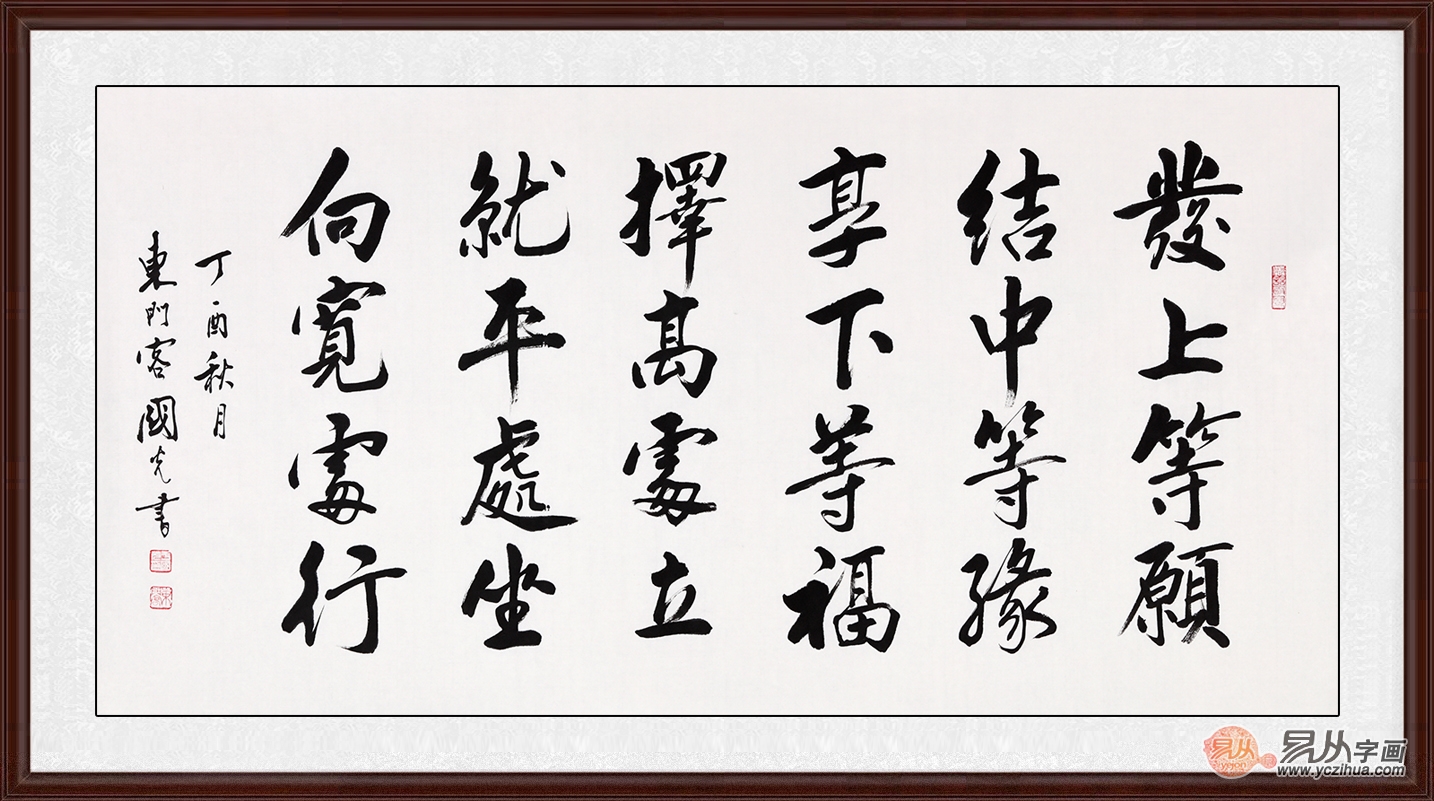 發上等願
結中等緣
享下等福
擇高處立
就平處坐
向寬處行
丁酉秋月
東門客國光書
易从
yczh
易从字画
www.yczihua.com